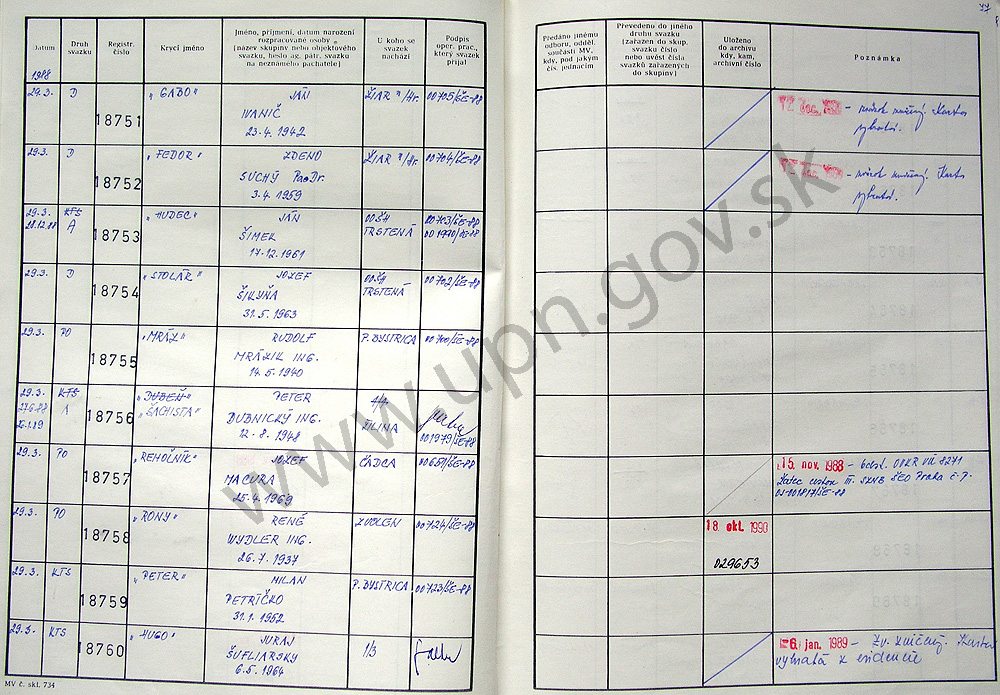 Datum
Druh svazku
Registr. číslo
Krycí jméno
Jméno, příjmení, datum narození
rozpracované osoby
(název skupiny nebo objektového
svazku, heslo ag. pátr. svazku
na neznámého pachatele)
U koho se
svazek
nachází
Podpis
oper. prac.,
který svazek
přijal
Předáno jinému
odboru, odděl.
součásti MV,
kdy, pod jakým
čís. jednacím
Převedeno do jiného
druhu svazku
(zařazen do skup.
svazku číslo
nebo uvést čísla
svazků zařazených
do skupiny)
Uloženo
do archivu
kdy, kam,
archivní číslo
Poznámka
1988
29.3. D 18751 „GABO" JÁN ŽIAR n/Hr. 00705/ŠE-88
IVANIČ
23.4.1942
29.3. D 18752 „FEDOR" ZDENO ŽIAR n/Hr. 00704/ŠE-88
SUCHÝ PaedDr.
3.4.1959
29.3. KTS 18753 „HUDEC" JÁN OOŠH 00703/ŠE-88
28.12.88 A ŠIMEK TRSTENÁ
17.12.1961
29.3. D 18754 „STOLÁR" JOZEF OOŠH 00702/ŠE-88
ŠIKYŇA TRSTENÁ
31.5.1963
29.3. PO 18755 „MRÁZ" RUDOLF P. BYSTRICA 00700/ŠE-88
MRÁZIK ING.
14.5.1940
29.3. KTS 18756 „DUBEŇ" PETER
A „ŠACHISTA" DUBNICKÝ ING. ŽILINA
12.8.1948 001979/ŠE-88
29.3. PO 18757 „REHOĽNÍK" JOZEF ČADCA 00651/ŠE-88
MACURA
25.4.1969
15. nov. 1988
29.3. PO 18758 „RONY" RENÉ ZVOLEN 00724/ŠE-88
WYDLER ING.
26.7.1937
18. okt. 1990
029653
29.3. KTS 18759 „PETER" MILAN P. BYSTRICA 00723/ŠE-88
PETRÍČKO
31.1.1952
29.3. KTS 18760 „HUGO" JURAJ 1/3
ŠUFLIARSKY
6.5.1964
6. jan. 1989 - Zv. zničený.
vyňatá z evidencie
MV č. skl. 734
www.upn.gov.sk